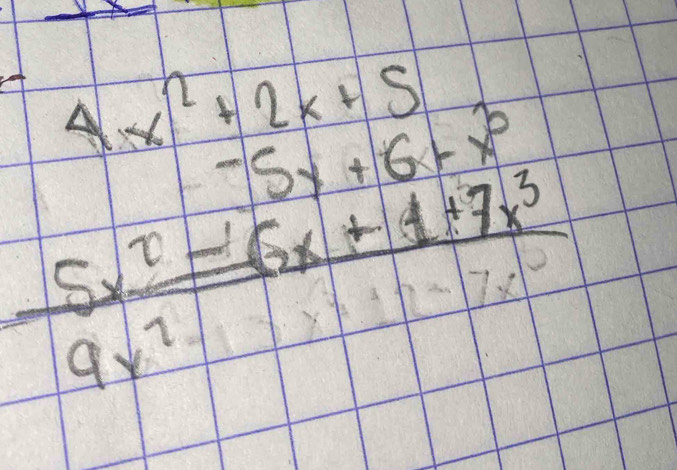 4x² + 2x + 5
-5x + 6 + x³
5x² - 6x + 1 + 7x³
9x²